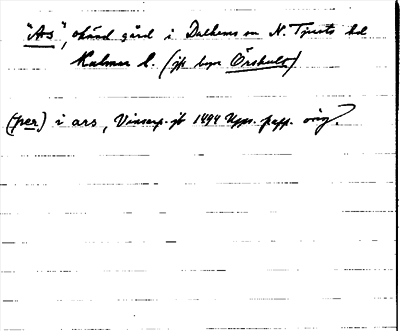 "As", okänd gård i Dalhems sn N. Tjusts hd
Kalmar l. (jfr byn Örshult)
(per) i ars, Vinserp. jb 1494 Upps. papp. orig.